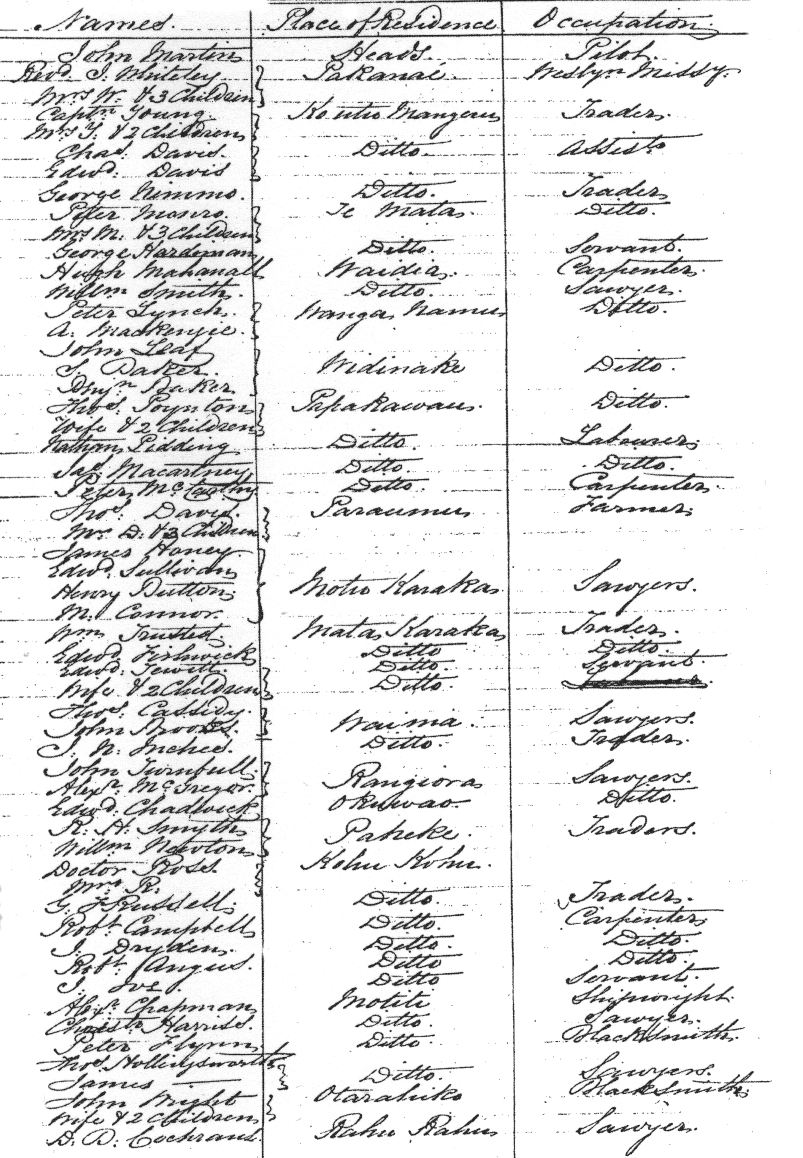 Names. Place of Residence Occupation
John Martin Heads Pilot.
Revd. J. Whiteley Pakanae. Weslyn Missy.
Mrs W. & 3 Children
Captn Young. Trader.
Mrs Y. & 2 Children
Chas. Davis. Ditto. Assist.
Edwd. Davis
George Nimmo. Ditto. Trader
Peter Monro. Te Mata. Ditto.
Mrs M. & 3 Children
George Hardiman Ditto. Servant.
Hugh Carpenter.
Willm Smith. Ditto. Sawyer.
Peter Lynch. Wanga Namu Ditto.
A. Mackenzie.
John Leaf
J. Baker. Widinake Ditto.
Benjn Baker
Thos. Poynton Papakawau. Ditto.
Wife & 2 Children
Nathan Pidding Ditto. Labourer.
Jas. Macartney Ditto. Ditto.
Peter McCarthy. Ditto. Carpenter.
Thos. Davis. Farmer.
Mrs D. & 3 Children
James Honey.
Edwd. Sullivan
Henry Button. Motu Karaka Sawyers.
M. Connor.
Wm Trusted. Mata Karaka Trader.
Edwd Fishwick Ditto Ditto.
Edwd. Jewitt Ditto. Servant.
Wife & 2 Children Ditto.
Thos. Cassidy. Waima. Sawyers.
John Brooks.
J. N. Ditto. Trader.
John Turnbull. Rangiora Sawyers.
Alexr. McGregor.
Edwd. Chadwick Ditto.
R. H. Smyth Paheke. Traders.
Willm Newton
Doctor Ross. Kohu Kohu.
Mrs R.
G. F. Russell. Ditto. Trader.
Robt. Campbell Ditto. Carpenter.
J. Dryden. Ditto. Ditto.
Robt. Angus. Ditto Ditto.
J. Ditto Servant.
Alexr. Chapman Motiti Shipwright.
Christr Harris. Ditto. Sawyer.
Peter Flynn Ditto. Blacksmith.
Thos Hollingsworth
James — Ditto. Sawyers.
John Wright Blacksmith.
Wife & 2 Children
D. B. Cochrane. Rahu Rahu Sawyer.